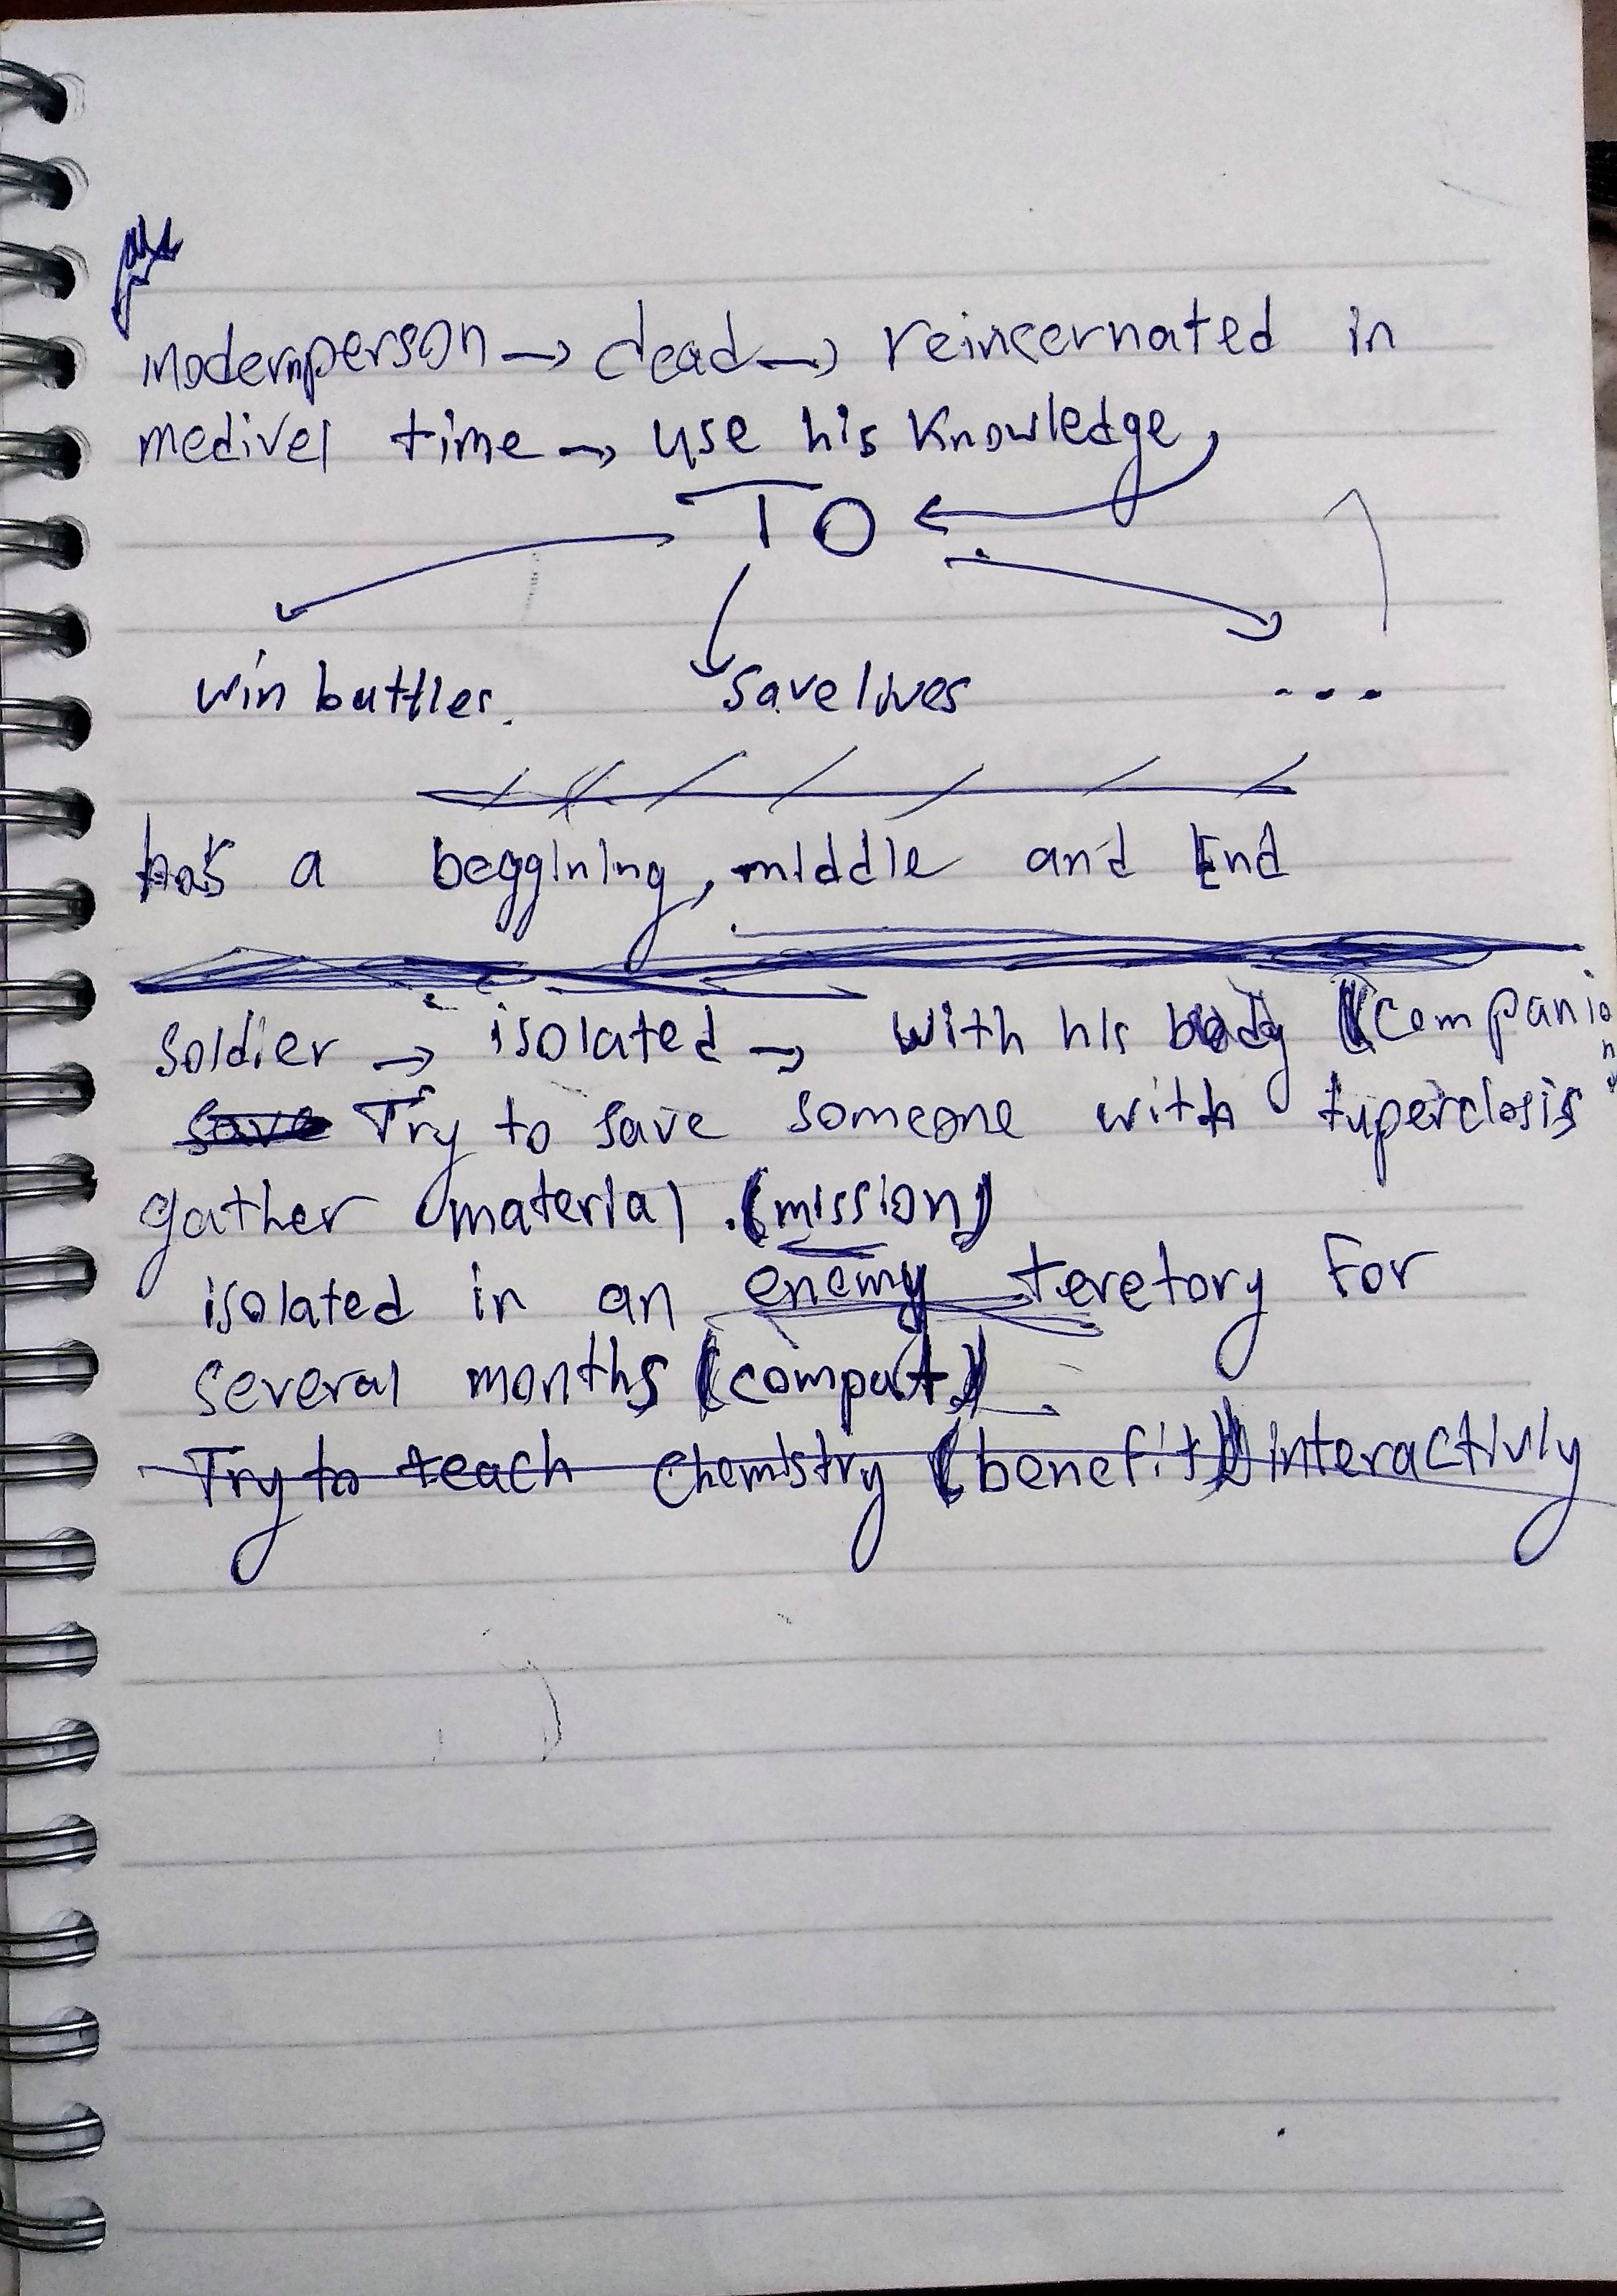 modernperson → dead → reincernated in
medivel time → use his Knowledge
TO
win buttles. save lives ...
has a beggining, middle and End
soldier → isolated → with his body (companion)
save Try to save someone with tuperclosis
gather material. (mission)
isolated in an enemy teretory For
several months (compat)
Try to teach chemistry (benefit) interactivly